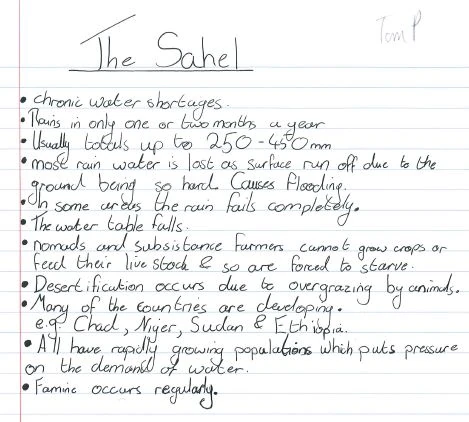 Tom P
The Sahel
• chronic water shortages.
• Rains in only one or two months a year
• Usually totals up to 250-450mm
• most rain water is lost as surface run off due to the
ground being so hard Causes flooding.
• In some areas the rain fails completely.
• The water table falls.
• nomads and subsistance farmers cannot grow crops or
feed their live stock & so are forced to starve.
• Desertification occurs due to overgrazing by animals.
• Many of the countries are developing.
e.g Chad, Niger, Sudan & Ethiopia.
• All have rapidly growing populations which puts pressure
on the demand of water.
• Famine occurs regularly.